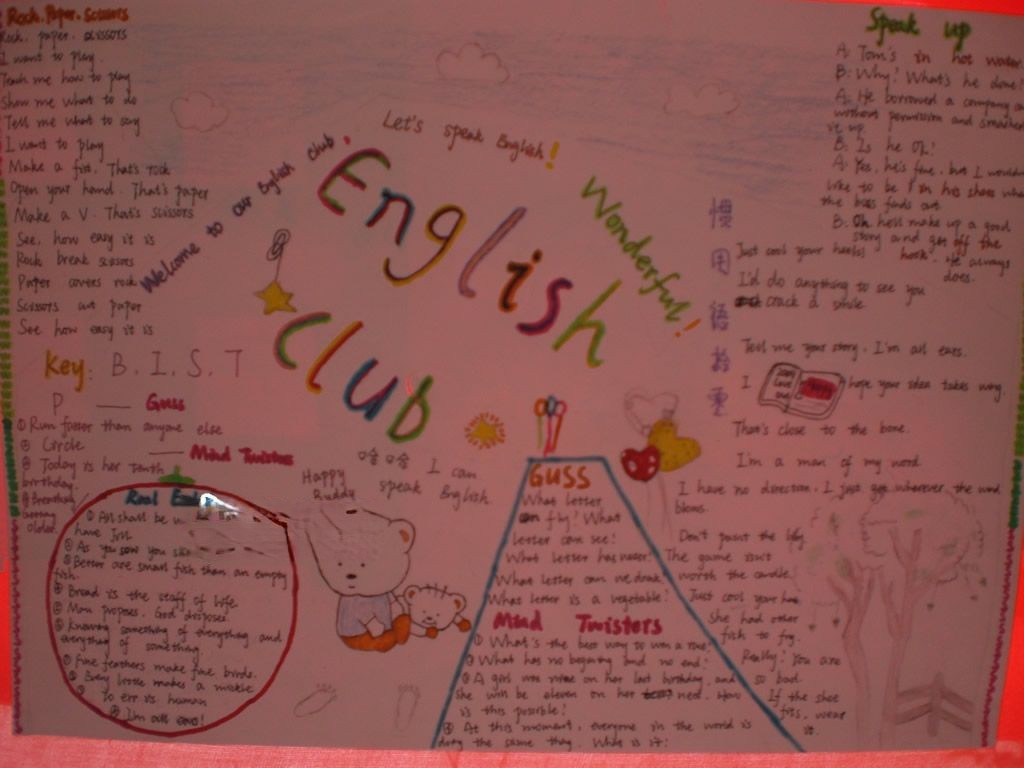 Rock. Paper. Scissors
Rock. paper. scissors
I want to play.
Teach me how to play
Show me what to do
Tell me what to say
I want to play
Make a fist. That's rock
Open your hand. That's paper
Make a V. That's scissors
See, how easy it is
Rock break scissors
Paper covers rock
Scissors cut paper
See how easy it is
Key: B. I. S. T
P — Guss
① Run faster than anyone else
② Circle
③ Today is her tenth — Mind Twisters
birthday.
④ Breathing
getting
older
Real
① All shall be
have Jill
② As you sow you
③ Better are small fish than an empty
fish.
④ Bread is the staff of life.
⑤ Man proposes. God disposes.
⑥ Knowing something of everything and
everything of something.
⑦ Fine feathers make fine birds.
⑧ Every little makes a mickle
⑨ To err is human
⑩ I'm all ears!
Welcome to our English club.
Let's speak English!
English
Club
Wonderful!
Happy
Buddy
哈哈 I can
speak English.
GUSS
What letter
can fly? What
letter can see?
What letter has water?
What letter can we drink?
What letter is a vegetable?
Mind Twisters
① What's the best way to win a race?
② What has no beginning and no end?
③ A girl was nine on her last birthday, and
she will be eleven on her next. How
is this possible?
④ At this moment, everyone in the world is
doing the same thing. What is it?
Speak up
A: Tom's in hot water.
B: Why? What's he done?
A: He borrowed a company car
without permission and smashed
it up.
B: Is he Ok?
A: Yes, he's fine, but I wouldn't
like to be in his shoes when
the boss finds out.
B: Oh. he'll make up a good
story and get off the
hook. He always
does.
Just cool your heels
I'd do anything to see you
crack a smile.
Tell me your story, I'm all ears.
I hope your idea takes wing.
That's close to the bone.
I'm a man of my word.
I have no direction, I just go wherever the wind
blows.
Don't paint the lily.
The game isn't
worth the candle.
Just cool your
she had other
fish to fry.
Really? You are
so bad.
If the shoe
fits, wear
it.